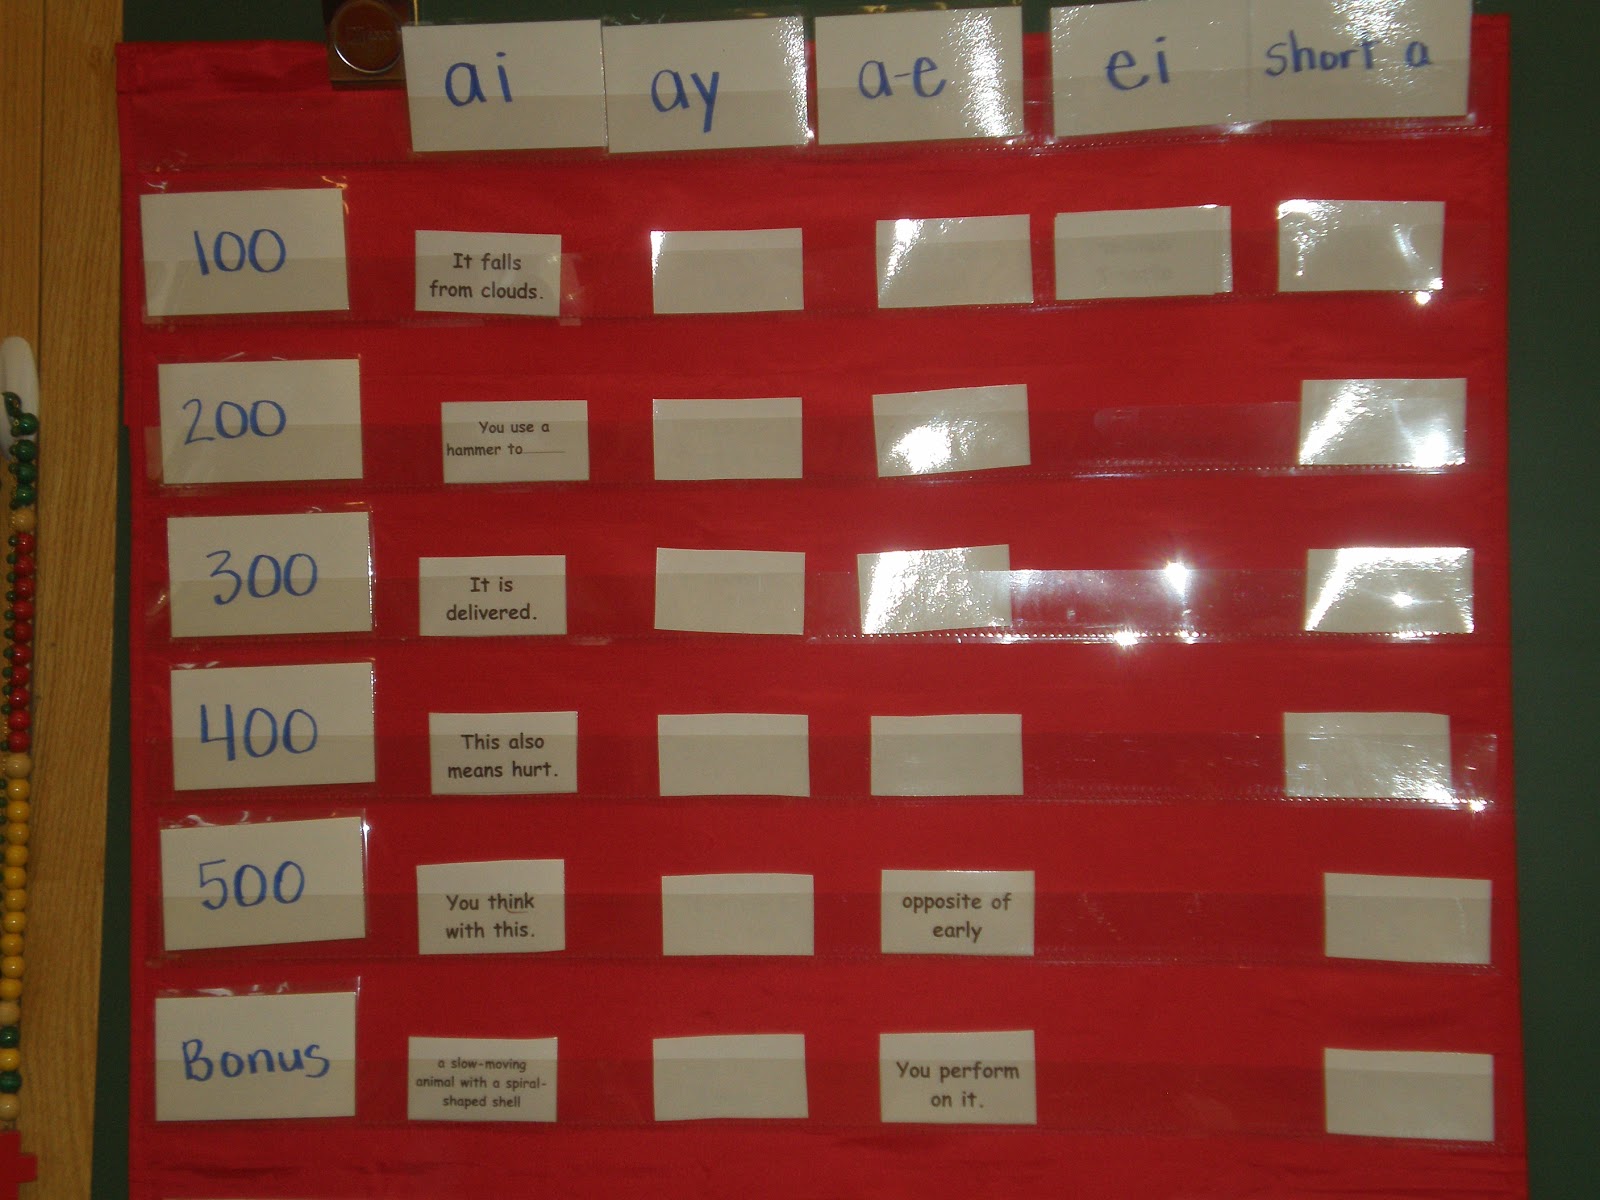 ai
ay
a-e
ei
short a
100
It falls
from clouds.
200
You use a
hammer to______
300
It is
delivered.
400
This also
means hurt.
500
You think
with this.
opposite of
early
Bonus
a slow-moving
animal with a spiral-
shaped shell
You perform
on it.